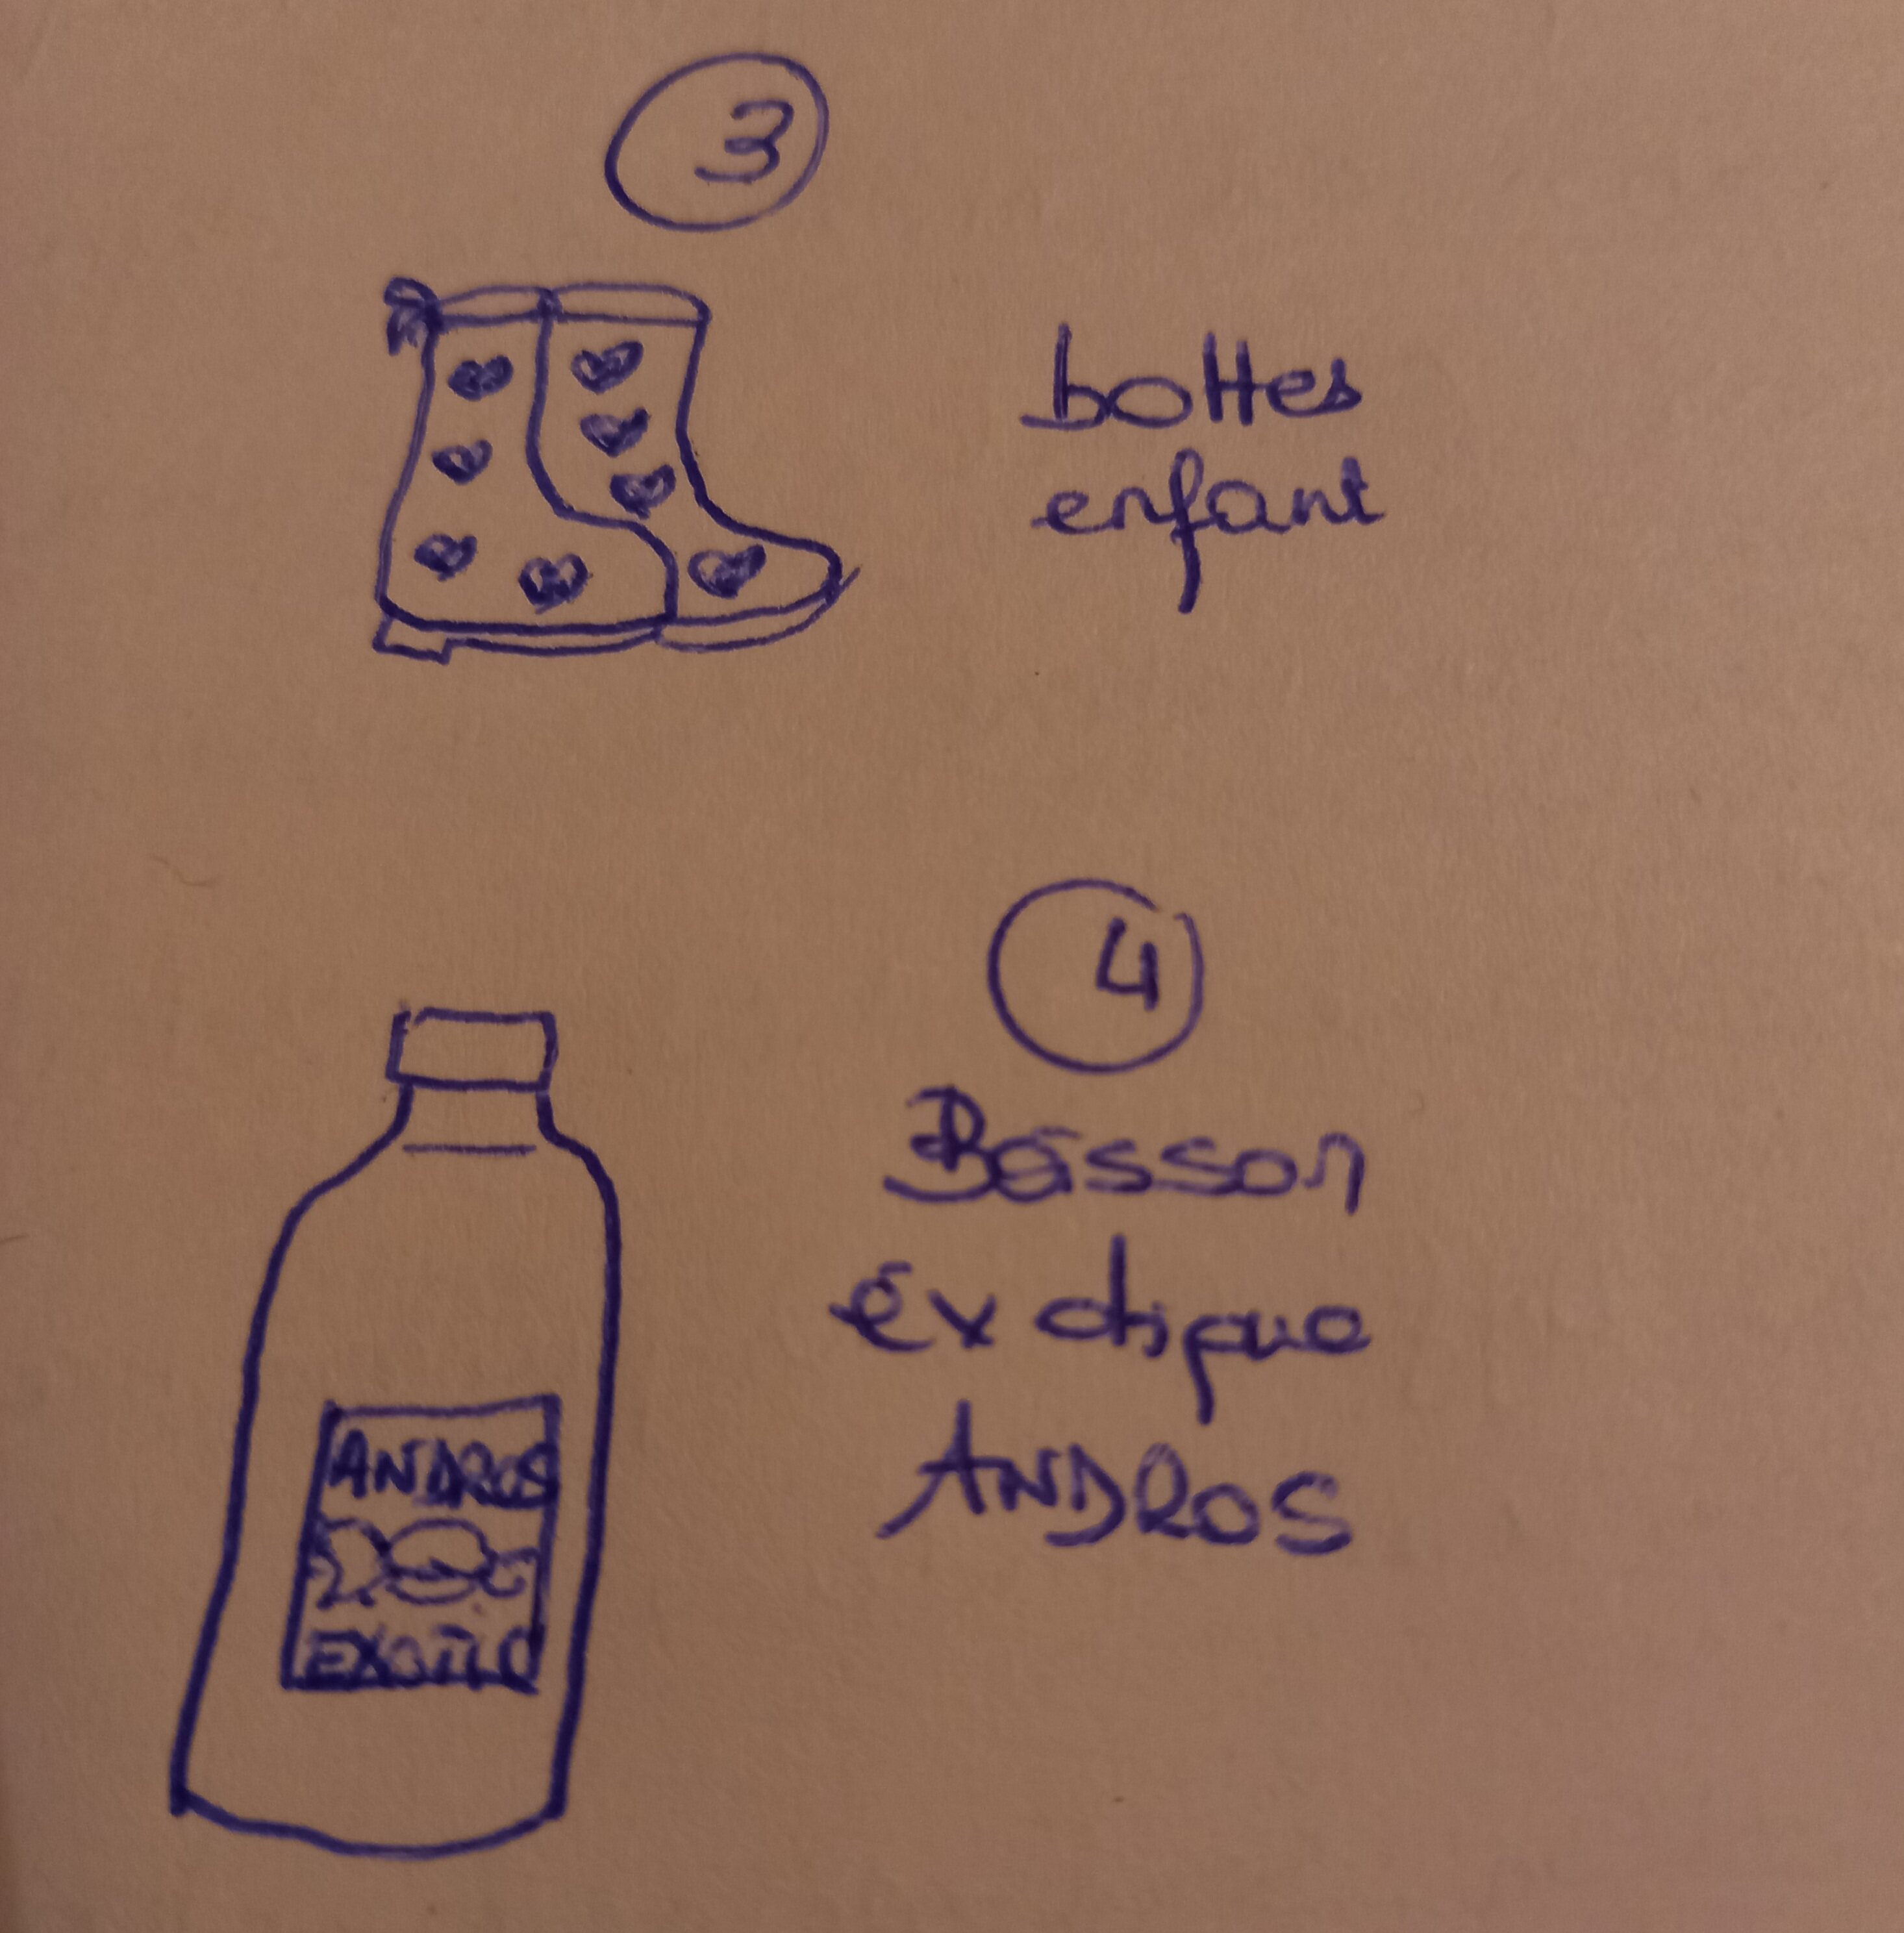 3
bottes
enfant
4
Boisson
éxotique
ANDROS
ANDROS
EXOTIC